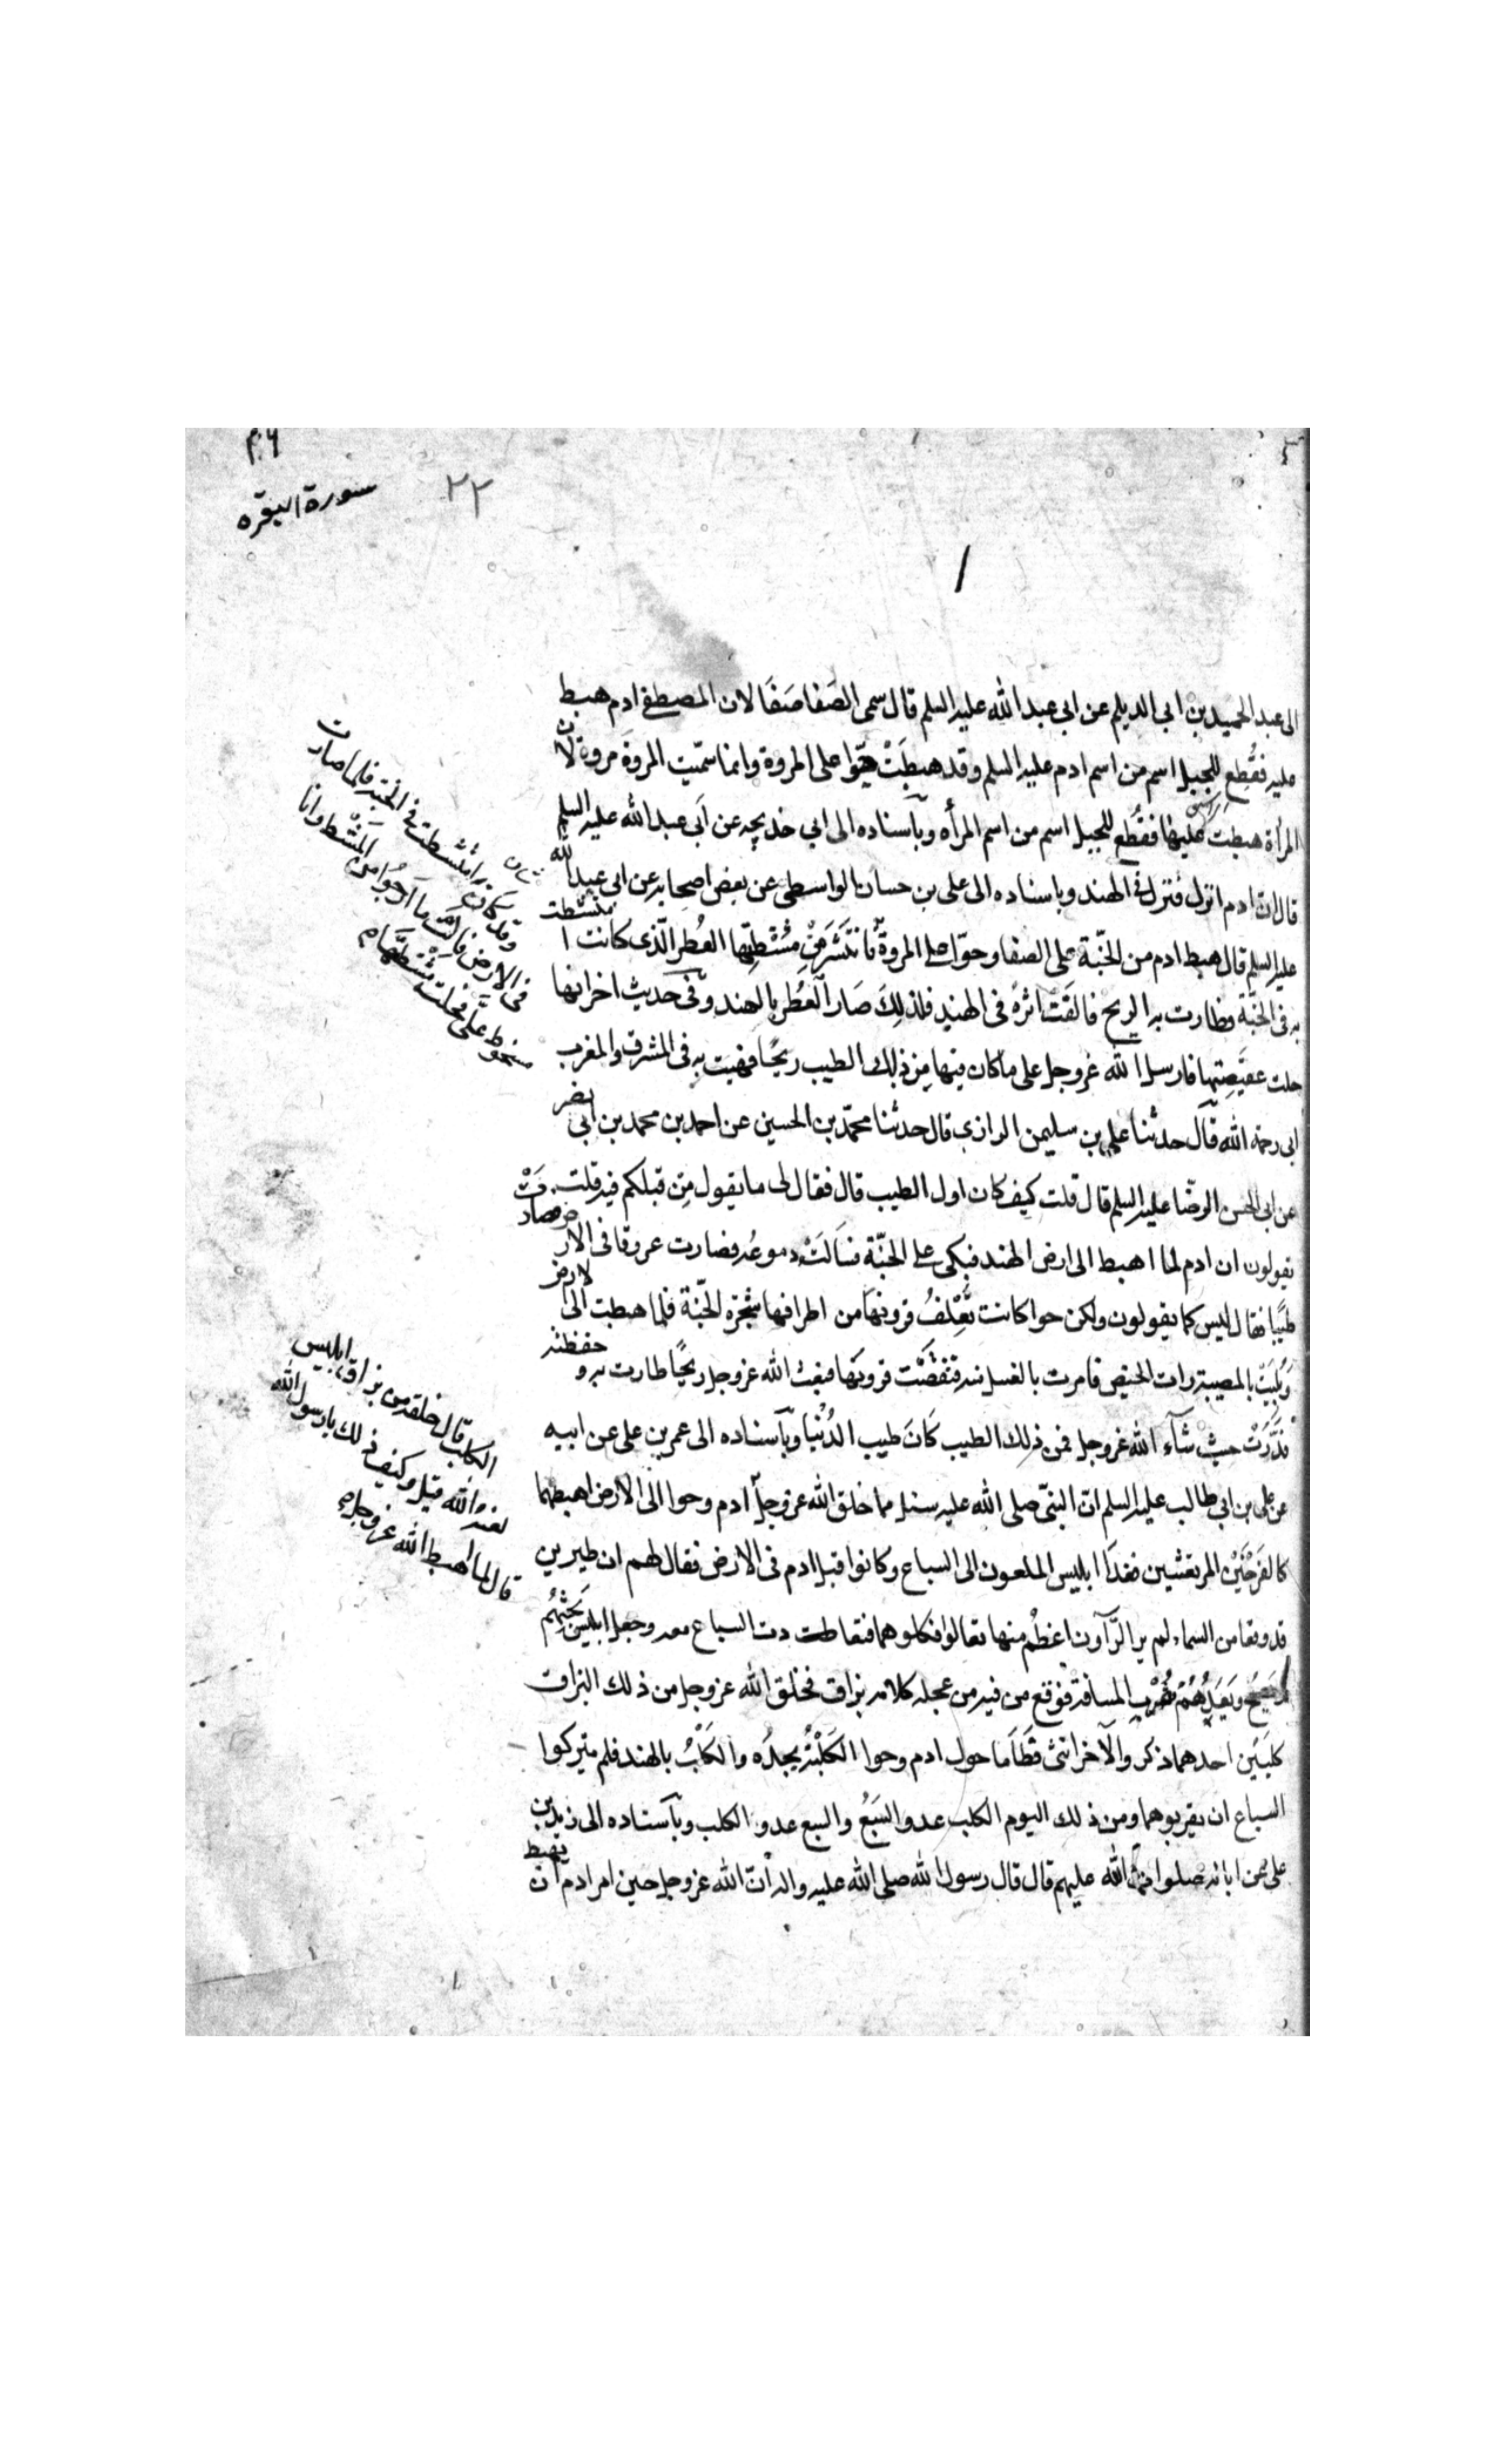 سورة البقره
٢٢
الى عبد الحميد بن ابى الديلم عن ابى عبد الله عليه السلم قال سمى الصَفا صَفًا لان المصطفى ادم هبط
عليه فقُطِع للجبل اسم من اسم ادم عليه السلم وقد هبطَتْ حوّا على المروة وانما سمّيت المروة مروة لان
المرأة هبطت عليها فقُطِع للجبل اسم من اسم المرأه وبآسناده الى ابى خديجه عن ابى عبد الله عليه السلم
قال ان ادم انزل فنزل فى الهند وباسناده الى على بن حسان الواسطى عن بعض اصحابه عن ابى عبد الله
عليه السلم قال هبط ادم من الجنّة على الصفا وحوّا على المروة مُشْطِها العُطر الّذى كانت امتشطت
به فى الجنّة فطارت به الريح فالقَتْ اثرهُ فى الهند فلذلِكَ صَار العُطر بالهند وفى حديث اخر انها
حلت عقيصتها فارسل الله عزوجل على ما كان فيها مِن ذلك الطيب ريحًا فهبت به فى المشرق والمغرب
ابى رحمه الله قال حدثنا على بن سليمن الرازى قال حدثنا محمّد بن الحسين عن احمد بن محمد بن ابى نصر
عن ابى الحسن الرضا عليه السلم قال قلت كيف كان اول الطيب قال فقال لى ما يقول مِن قبلكم فيه قلت
يقولون ان ادم لما اهبط الى ارض الهند فبكى على الجنّة فسَالَتْ دموعُه فصارت عروقا فى الارض فصارت
طيبًا فقال ليس كما يقولون ولكن حوا كانت تُغِلفُ قرونها من اطراف شجرة الجنّة فلما هبطت الى الارض
وبُلِيَتْ بالمصيبة رات الحيض فامرت بالغسل فنفضَتْ قرونها فبعث الله عزوجل ريحًا طارت به وخفظته
فذَرّتْ حيث شآء الله عزوجل فمن ذلك الطيب كَانَ طيب الدُنْيا وبآسناده الى عمر بن على عن ابيه
عن على بن ابى طالب عليه السلم انّ النبىّ صلى الله عليه سئل مما خلق الله عزوجلّ ادم وحوا الى الارض اهبطهما
كالفَرْخَيْن المرتعشين فغدَا ابليس الملعون الى السباع وكانوا قبل ادم فى الارض فقال لهم ان طيرين
قد وقعا من السماء لم ير الرّآون اعظمُ منها تعالوا فكلوهما فتعاطت دت السباع معه وجعل ابليس يَحثّهُم
ويَصيحُ ويَعِدُهُمْ بقُرْب المسافة فوقع من فيه من عجله كلامه بزاق فخلق الله عزوجل من ذلك البزاق
كلبَين احدهما ذكر والآخر انثى فقَامَا حول ادم وحوا الكَلْبَةُ بجدُه والكَلْبُ بالهند فلم يتركوا
السباع ان يقربوهما ومن ذلك اليوم الكلب عدو السَبُعُ والسبع عدو الكلب وبآسناده الى زيد بن
على عن ابائه صلوات الله عليهم قال قال رسول الله صلى الله عليه واله انّ الله عزوجل حين امر ادم ان يهبط
وقد كانت امتشطت فى الجنة فلما صارت
فى الارض قالت ما ارجُوا من المُشط وانا
مسخوط علَّى فحلت مشْطتَها م
الكلب قال خلقه من بزاق ابليس
لعنه الله قيل وكيف ذلك يا رسول الله
قال لما اهبط الله عزوجل م